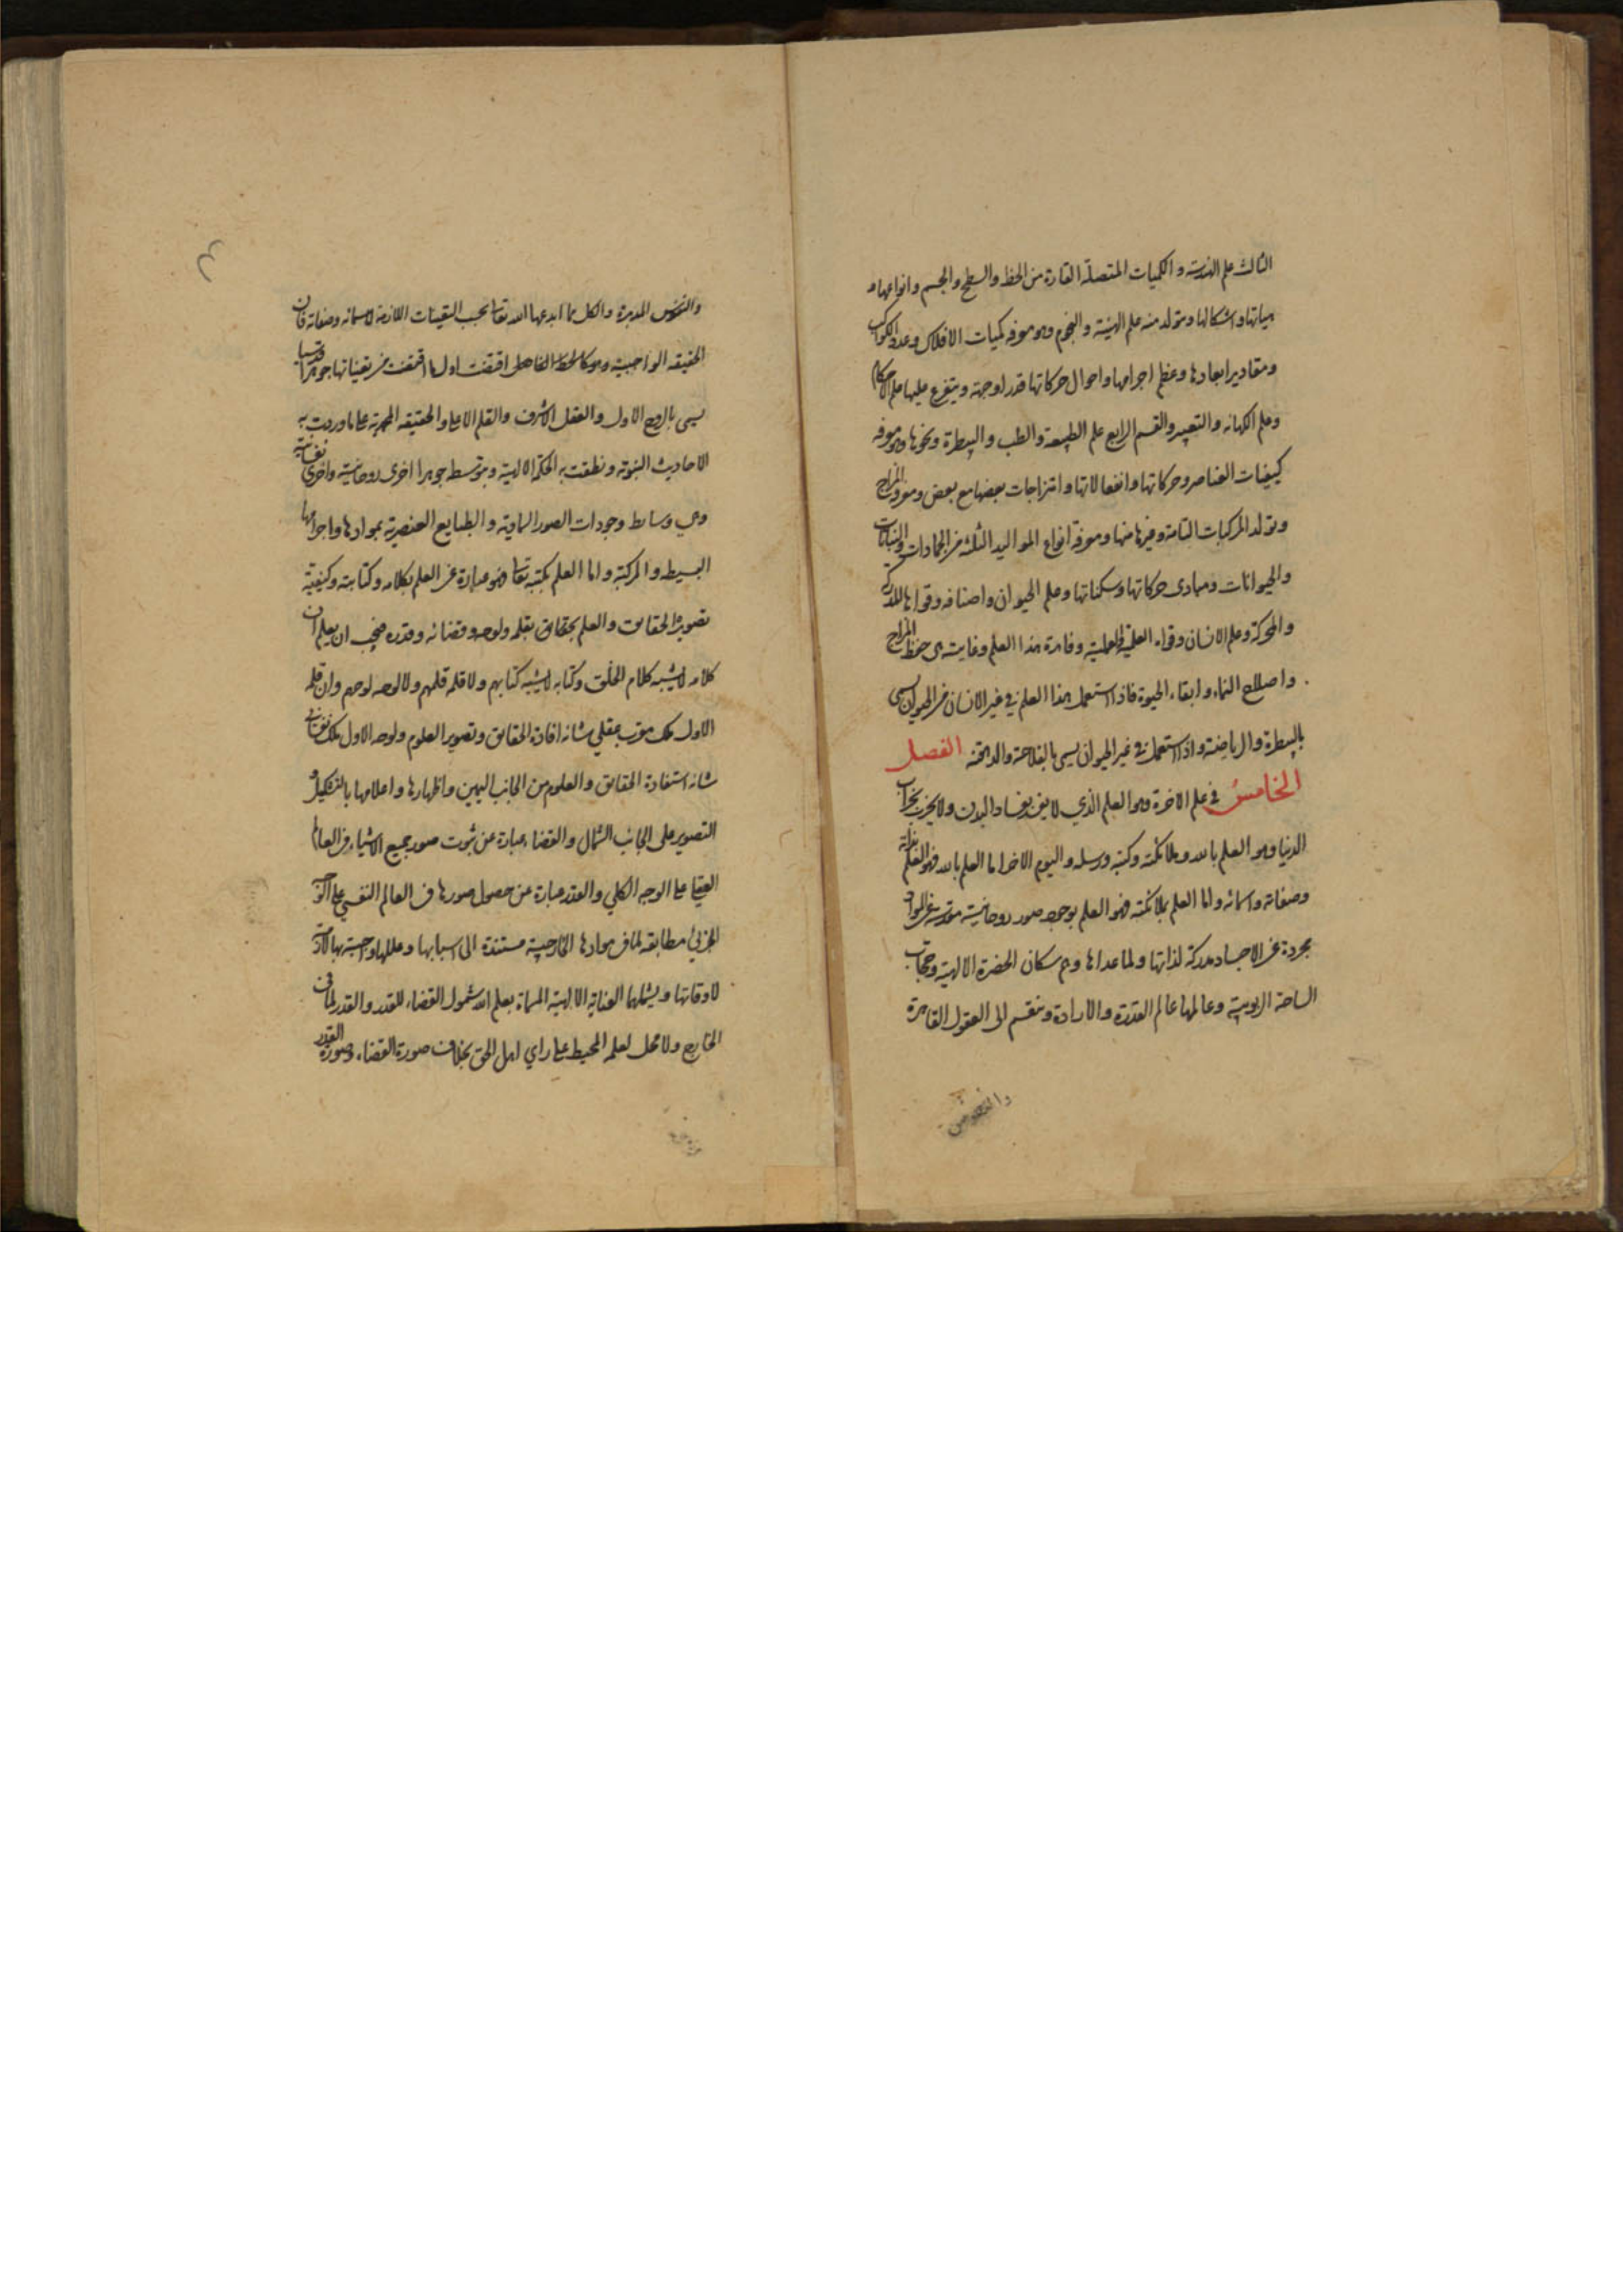 الثالث علم الهندسة و الكميات المتصلة القارة من الخط والسطح والجسم وانواعها و
هياتها واشكالها ويتولد منه علم الهيئة والنجوم وهو معرفة كميات الافلاك وعدد الكواكب
ومقادير ابعادها وعظم اجرامها واحوال حركاتها قدرا وجهة ويتفرع عليها علم الاحكام
وعلم الكهانه والتعبير والقسم الرابع علم الطبيعة والطب والبيطرة ونحوها وهو معرفة
كيفيات العناصر وحركاتها وانفعالاتها وامتزاجات بعضها مع بعض ومعرفة المزاج
وتولد المركبات التامة وغيرها منها ومعرفة انواع المواليد الثلثة من الجمادات والنباتات
والحيوانات ومبادى حركاتها وسكناتها وعلم الحيوان واصنافه وقواها المدركة
والمحركة وعلم الانسان وقواه العلمية والعملية وفايدة هذا العلم وغايته هى حفظ المزاج
واصلاح النماء وابقاء الحيوة فاذا استعمل هذا العلم في غير الانسان من الحيوان يسمى
بالبيطرة والرياضة واذا استعمل في غير الحيوان يسمى بالفلاحة والدهقنة الفصل
الخامس في علم الاخرة وهو العلم الذي لا يفسد بفساد البدن ولا يخرب بخراب
الدنيا وهو العلم بالله وملائكته وكتبه ورسله واليوم الاخر اما العلم بالله فهو العلم بذاته
وصفاته واسمائه واما العلم بملائكته فهو العلم بوجود صور روحانية مقدسة عن المواد
مجردة عن الاجساد مدركة لذاتها ولما عداها وهم سكان الحضرة الالهية وحجاب
الساحة الربوبية وعالمها عالم القدرة والارادة وينقسم الى العقول القاهرة
والنفوس
والنفوس المدبرة والكل مما ابدعها الله تعالى بحسب التعينات اللازمة لاسمائه وصفاته فان
الحقيقه الواجبية اقتضت اولا من تعيناتها جوهرا قدسيا
يسمى بالروح الاول والعقل الاشرف والقلم الاعلى والحقيقه المحمدية على ما وردت به
الاحاديث النبوية ونطقت به الحكمة الالهية وبتوسط جوهرا اخرى روحانية واخرى نفسانية
وهي وسايط وجودات الصور السماوية والطبايع العنصرية بموادها واجرامها
البسيطه والمركبة واما العلم بكتبه تعالى فهو عبارة عن العلم بكلامه وكتابته وكيفية
تصويره الحقايق والعلم بحقايق بقلمه ولوحه وقضائه وقدره فيجب ان يعلم ان
كلامه لا يشبه كلام الخلق وكتابه لا يشبه كتابهم ولا قلمه قلمهم ولا لوحه لوحهم وان قلمه
الاول ملك مقرب عقلي شانه افادة الحقايق وتصوير العلوم ولوحه الاول ملك نفساني
شانه استفادة الحقايق والعلوم من الجانب اليمين واظهارها واعلامها بالتشكيل و
التصوير على الجانب الشمال والقضاء عبارة عن ثبوت صور جميع الاشياء في العالم
العقلي على الوجه الكلي والقدر عبارة عن حصول صورها في العالم النفسي على الوجه
الجزئي مطابقه لما في موادها الخارجية مستندة الى اسبابها وعللها واجبة بها لازمة
لاوقاتها ويشملهما العناية الالهية المسماة بعلم الله شمول القضاء للقدر والقدر لما في
الخارج ولا محل لعلمه المحيط على راي اهل الحق بخلاف صورة القضاء وصورة القدر